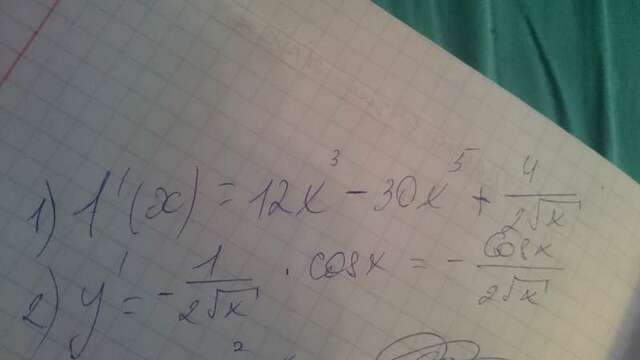 1) f'(x) = 12x³ - 30x⁵ + 4/(2√x)
2) y' = - 1/(2√x) · cosx = - cosx/(2√x)
2